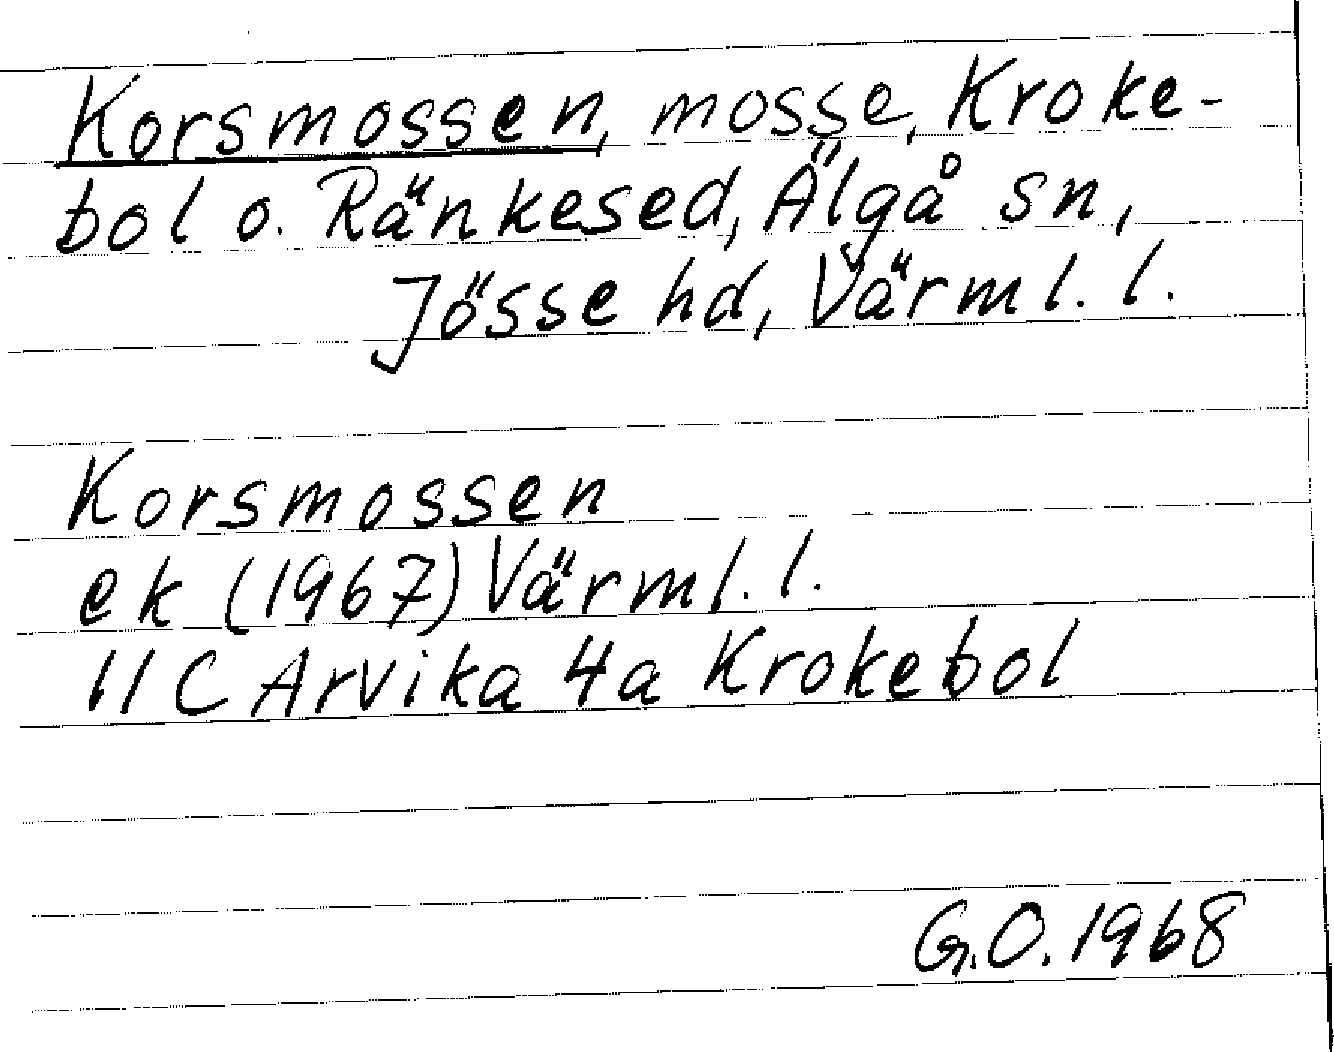 Korsmossen, mosse, Kroke-
bol o. Ränkesed, Älgå sn,
Jösse hd, Värml. l.
Korsmossen
ek (1967) Värml. l.
11 C Arvika 4a Krokebol
G.O. 1968